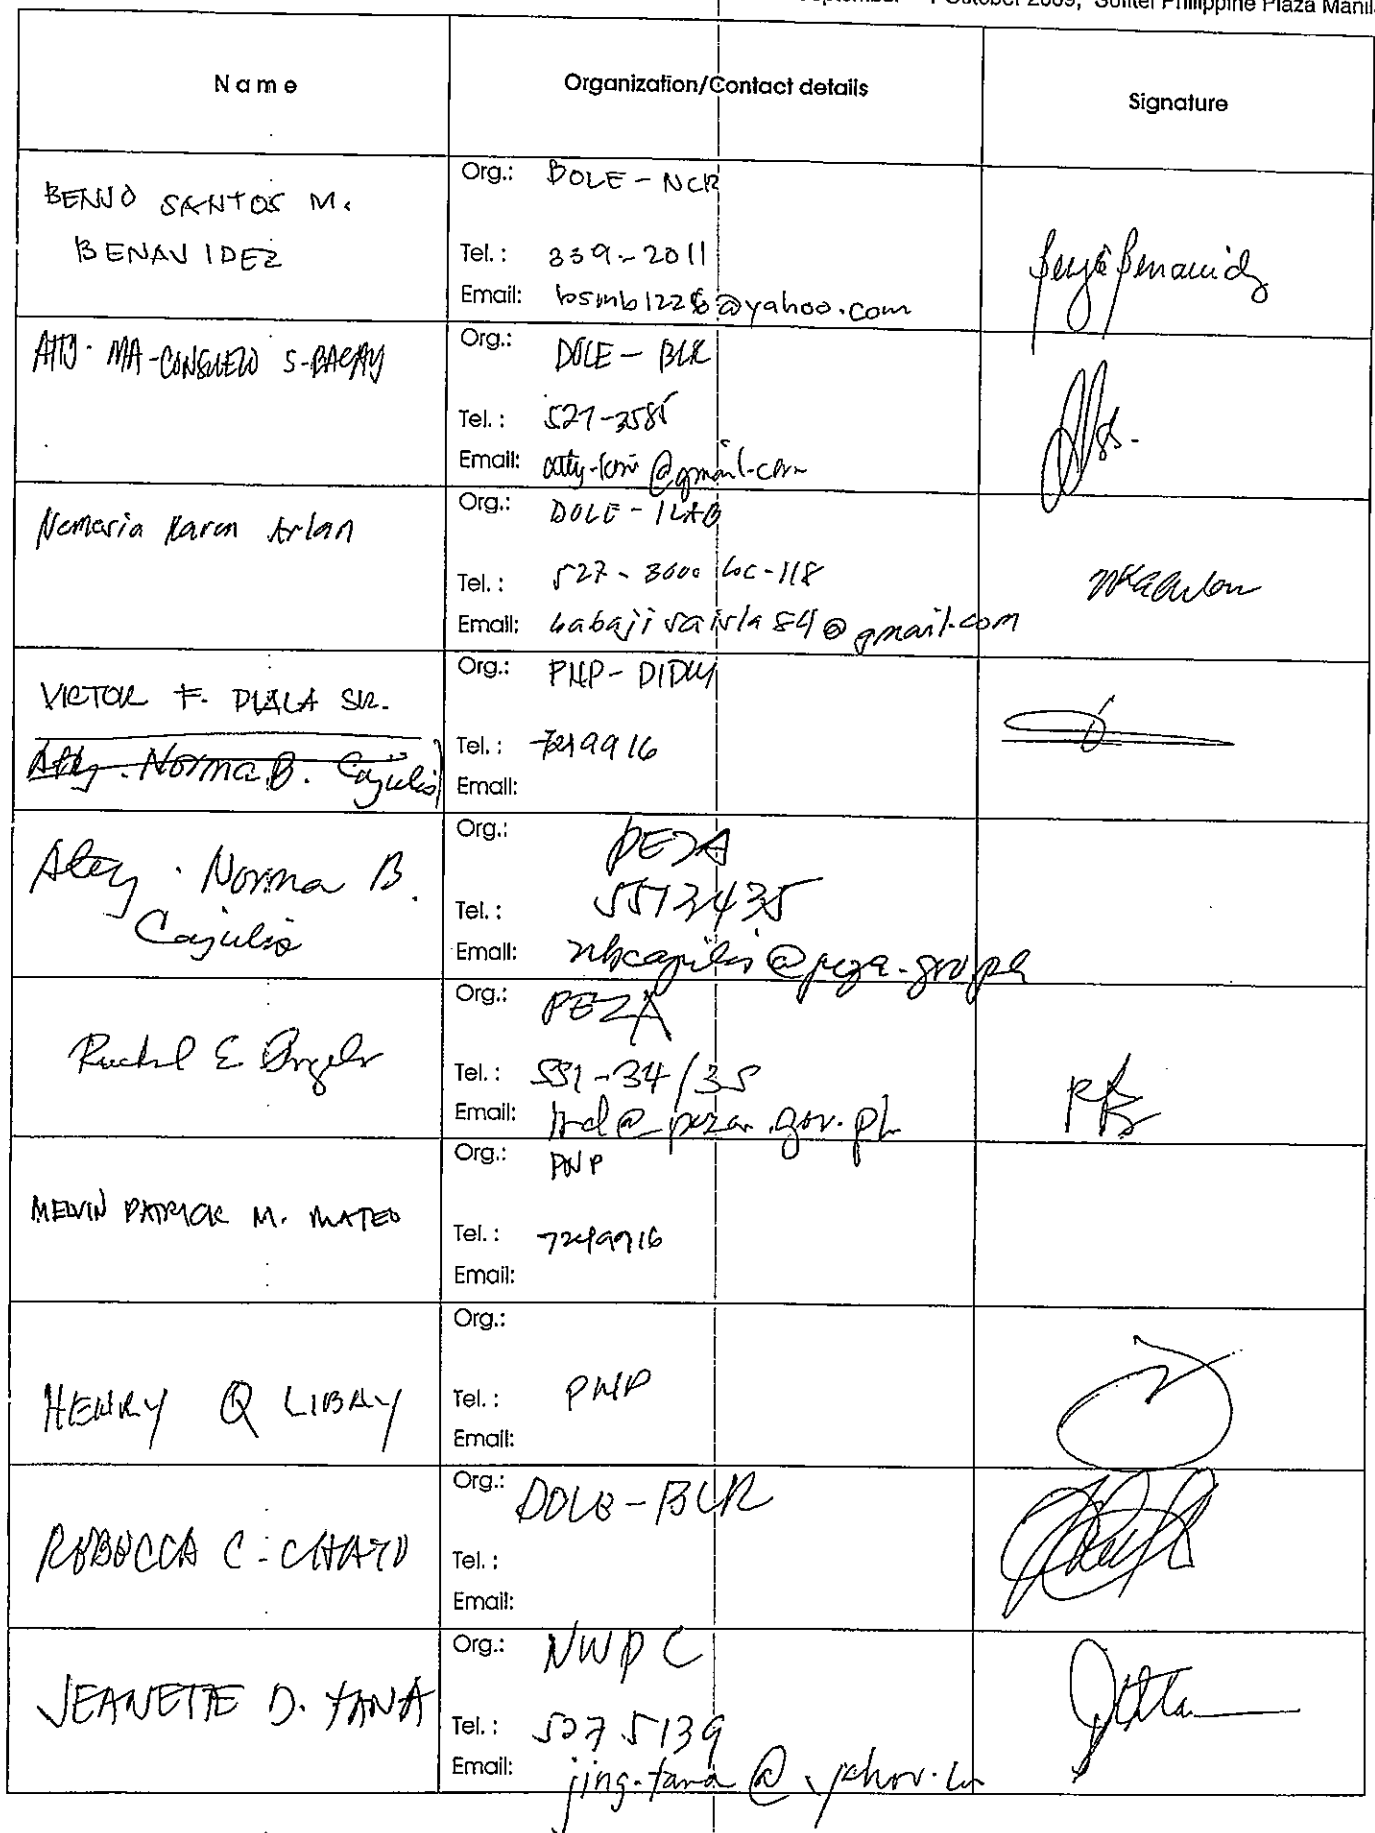 October 2009, Sofitel Philippine Plaza Manil
Name Organization/Contact details Signature
BENJO SANTOS M.
BENAVIDEZ
Org.: DOLE - NCR
Tel.: 339-2011
Email: bsmb1228@yahoo.com
ATTY. MA. CONSUELO S. BACAY
Org.: DOLE - BLR
Tel.: 527-3585
Email: @gmail.com
Nemesia Karen Arlan
Org.: DOLE - ILAB
Tel.: 527-3000 loc-118
Email: @gmail.com
VICTOR F. PLALA SR.
Atty. Norma B. Cajulis
Org.: PNP - DIDM
Tel.: 7249916
Email:
Atty. Norma B.
Cajulis
Org.: PEZA
Tel.: 5513435
Email: nbcajulis@peza.gov.ph
Rachel E. Angeles
Org.: PEZA
Tel.: 551-34/35
Email: @peza.gov.ph
MELVIN PATRICK M. MATEO
Org.: PNP
Tel.: 7249916
Email:
HENRY Q LIBAY
Org.:
Tel.: PNP
Email:
REBECCA C. CHATO
Org.: DOLE - BLR
Tel.:
Email:
JEANETTE D. TANA
Org.: NWPC
Tel.: 5275139
Email: jing.tana@yahoo.com